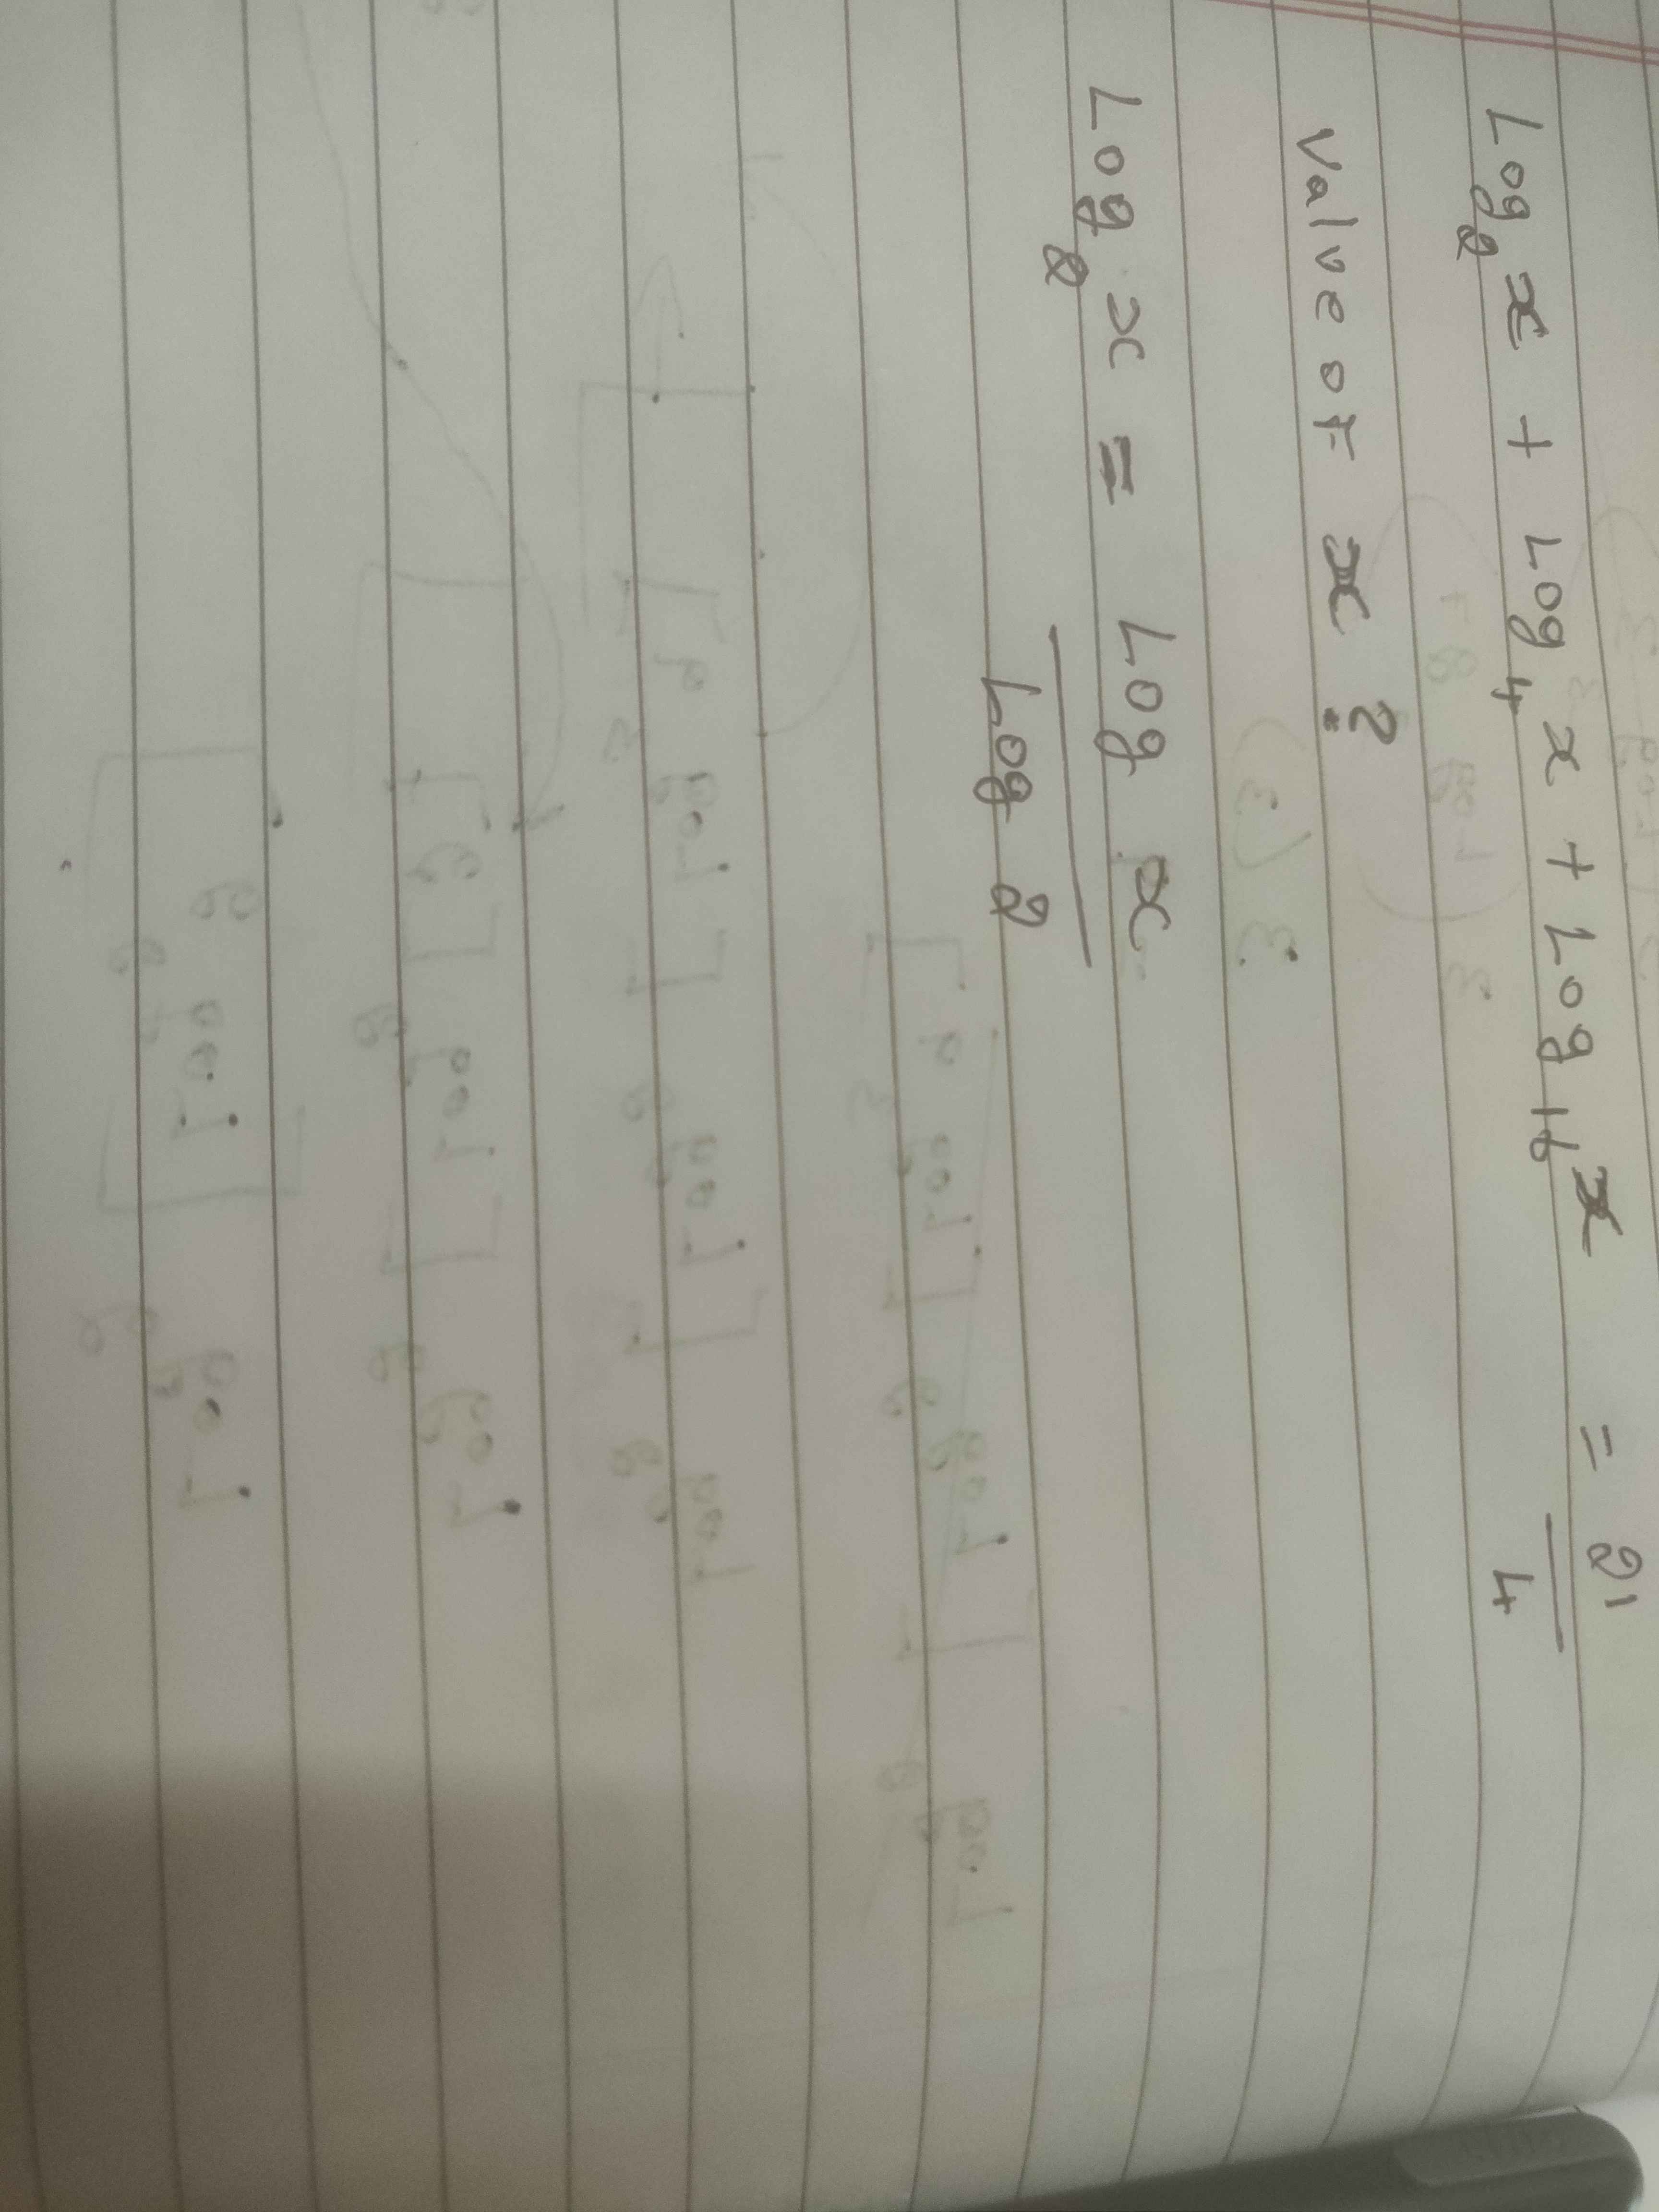 Log₂ x + Log₄ x + Log 16 x = 21/4
Value of x ?
Log₂ x = Log x
Log 2